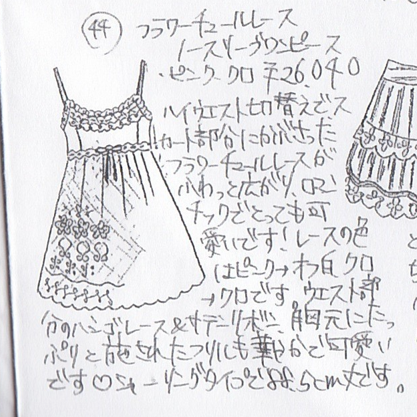 44 フラワーチュールレース
ノースリーブワンピース
・ピンク クロ ¥26,040
ハイウエスト切り替えでス
カート部分にかぶせた
フラワーチュールレースが
ふわっと広がり、ロマン
チックでとっても可
愛いです!レースの色
はピンク→オフ白 クロ
→クロです ウエスト部
分のハシゴレース&サテンリボン、胸元にたっ
ぷりと施されたフリルも華やかで可愛い
です♡シャーリングタイプで88.5cm丈です。